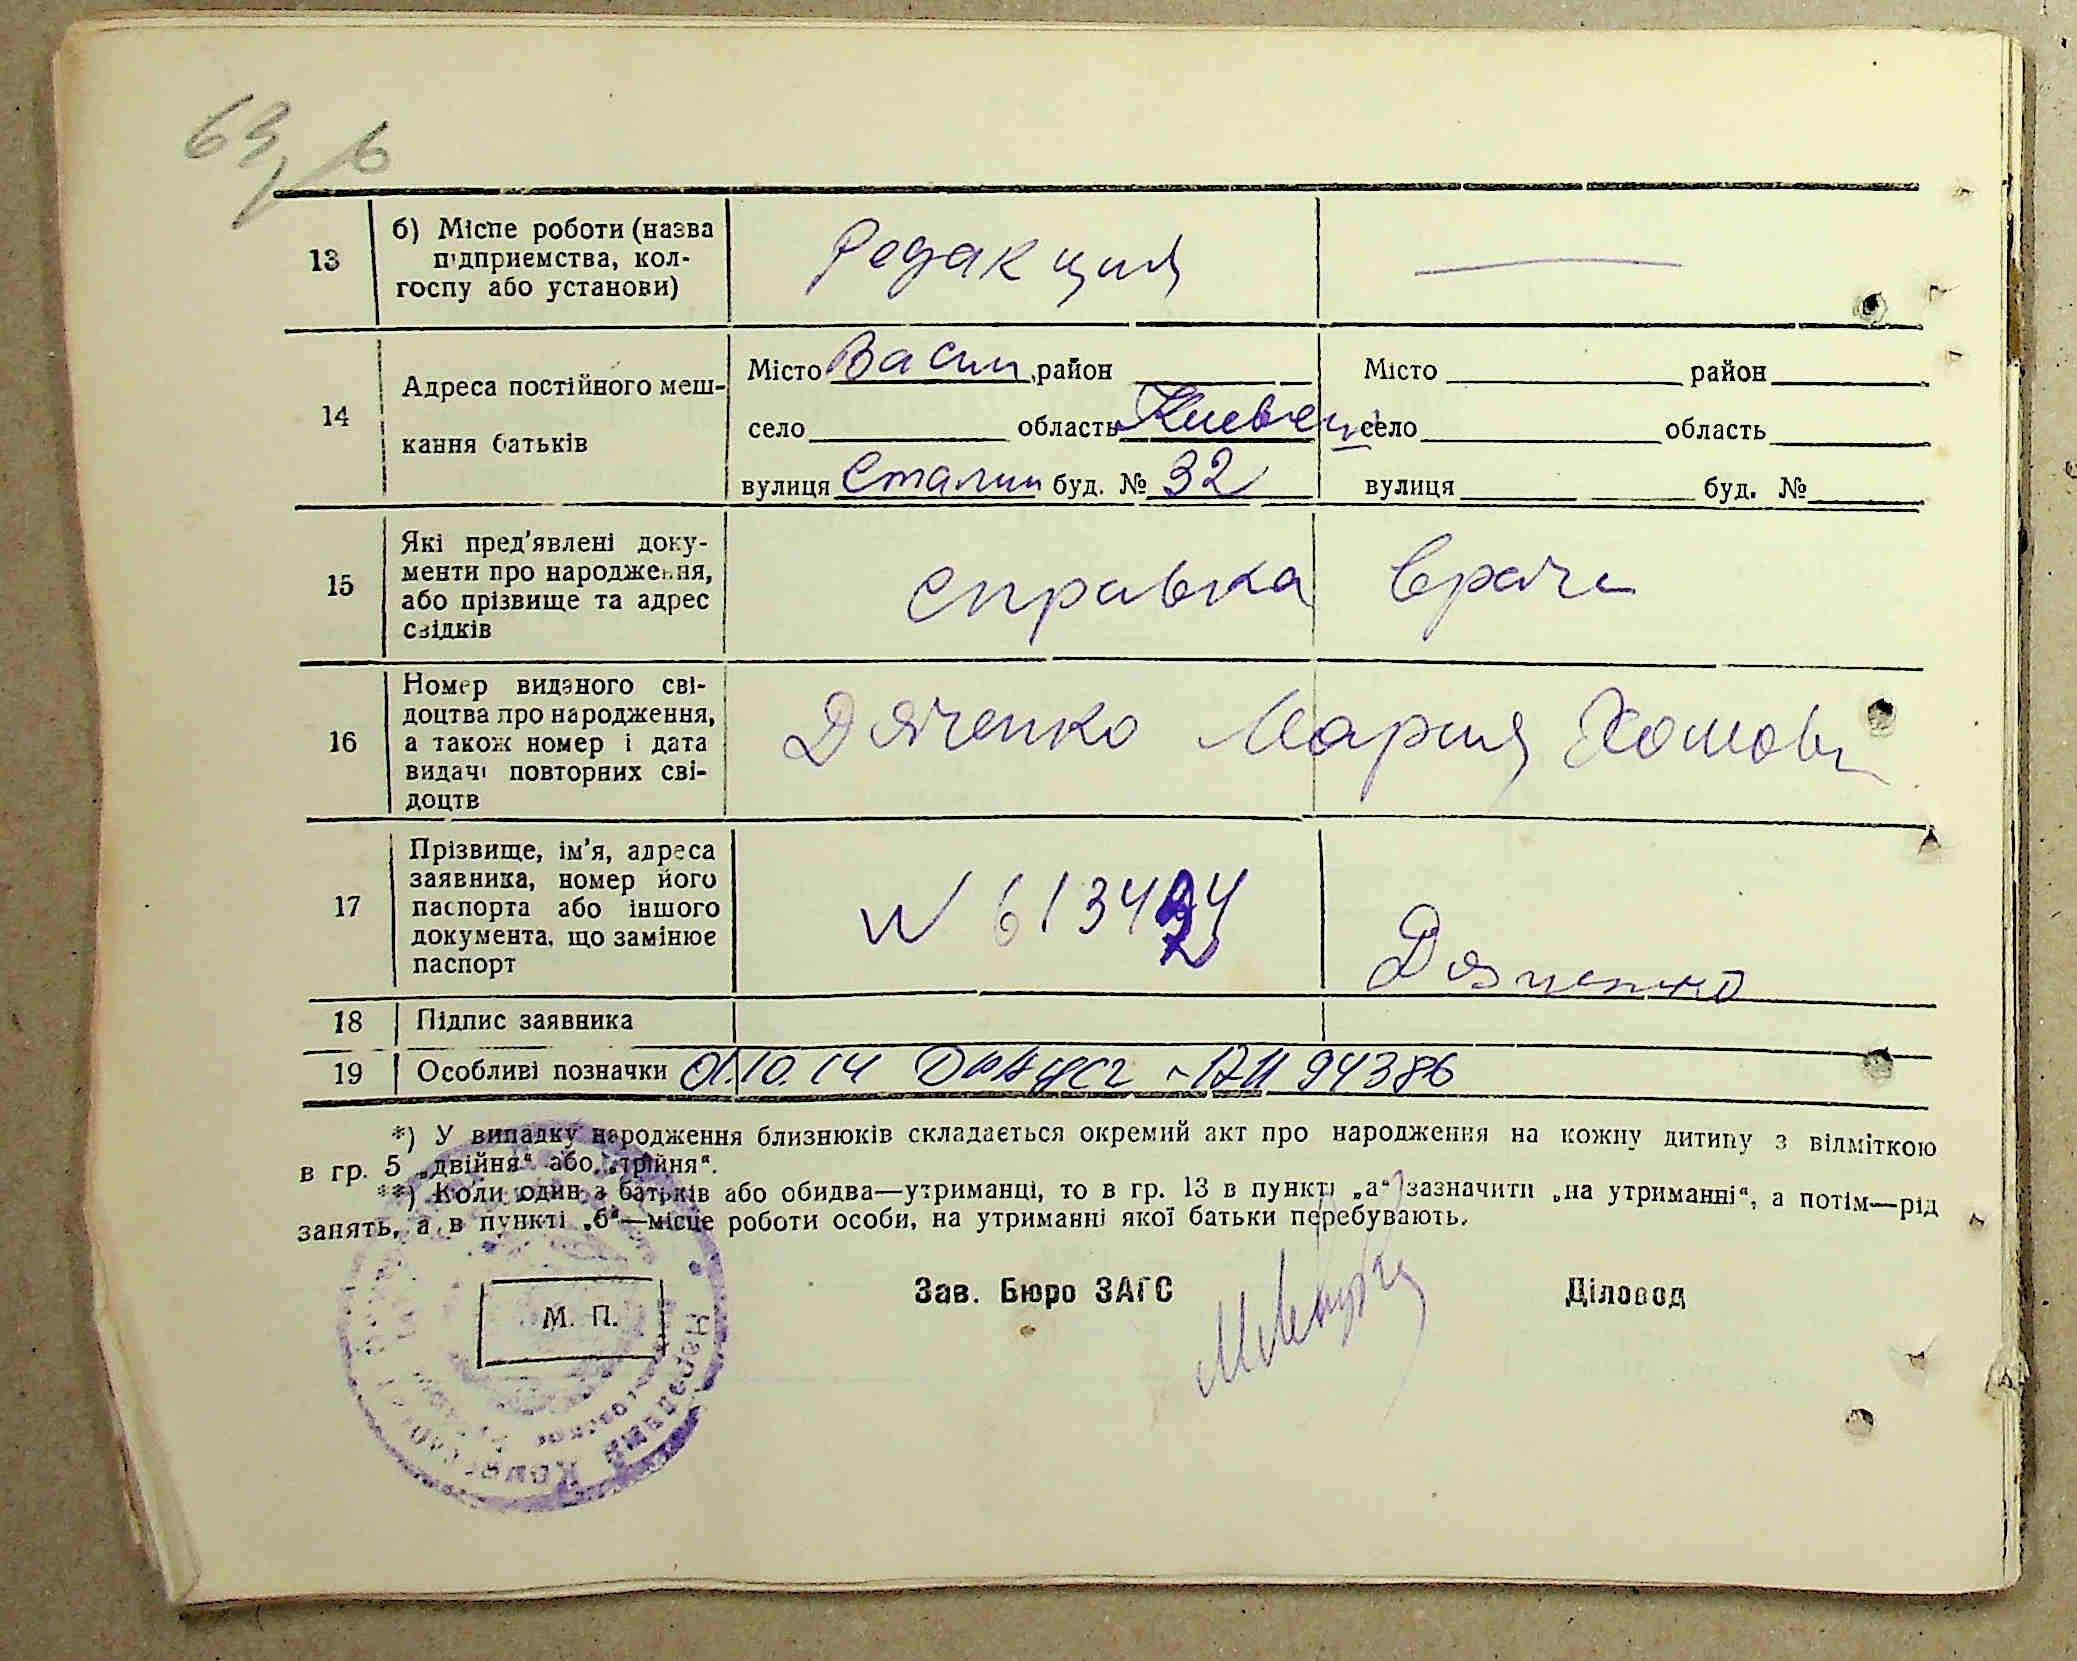 13
б) Місце роботи (назва
підприємства, кол-
госпу або установи)
Редакция
14
Адреса постійного меш-
кання батьків
Місто Васил район
Місто район
село область Киевск
село область
вулиця Сталин буд. № 32
вулиця буд. №
15
Які пред'явлені доку-
менти про народження,
або прізвище та адрес
свідків
справка врача
16
Номер виданого сві-
доцтва про народження,
а також номер і дата
видачі повторних сві-
доцтв
Дяченко Мария Хомовн
17
Прізвище, ім'я, адреса
заявника, номер його
паспорта або іншого
документа, що замінює
паспорт
Дяченко
18 Підпис заявника
19 Особливі позначки 01.10.14
*) У випадку народження близнюків складається окремий акт про народження на кожну дитину з відміткою
в гр. 5 „двійня“ або „трійня“.
**) Коли один з батьків або обидва—утриманці, то в гр. 13 в пункті „а“ зазначити „на утриманні“, а потім—рід
занять, а в пункті „б“—місце роботи особи, на утриманні якої батьки перебувають.
Зав. Бюро ЗАГС
Діловод
М. П.